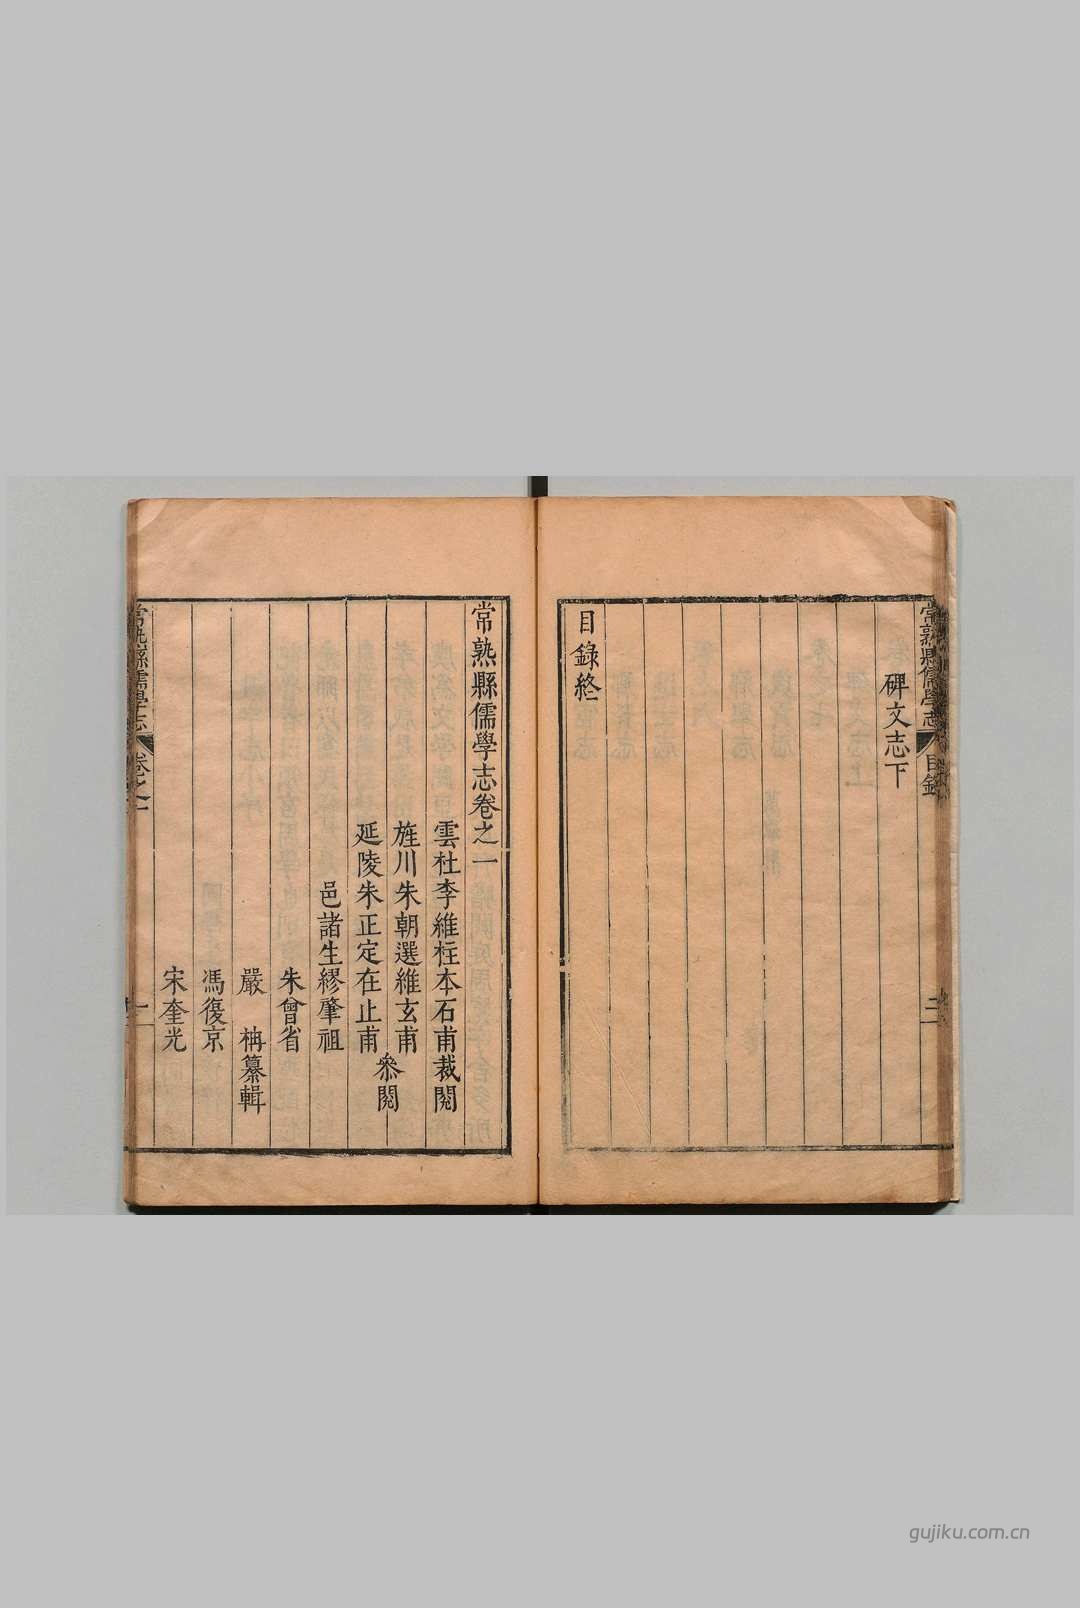 常熟縣儒學志
目錄
二
碑文志下
目錄終
常熟縣儒學志卷之一
雲杜李維柱本石甫裁閱
旌川朱朝選維玄甫
延陵朱正定在止甫
叅閱
邑諸生繆肇祖
朱曾省
嚴
纂輯
馮復京
宋奎光
常熟縣儒學志
卷之一
一
gujiku.com.cn